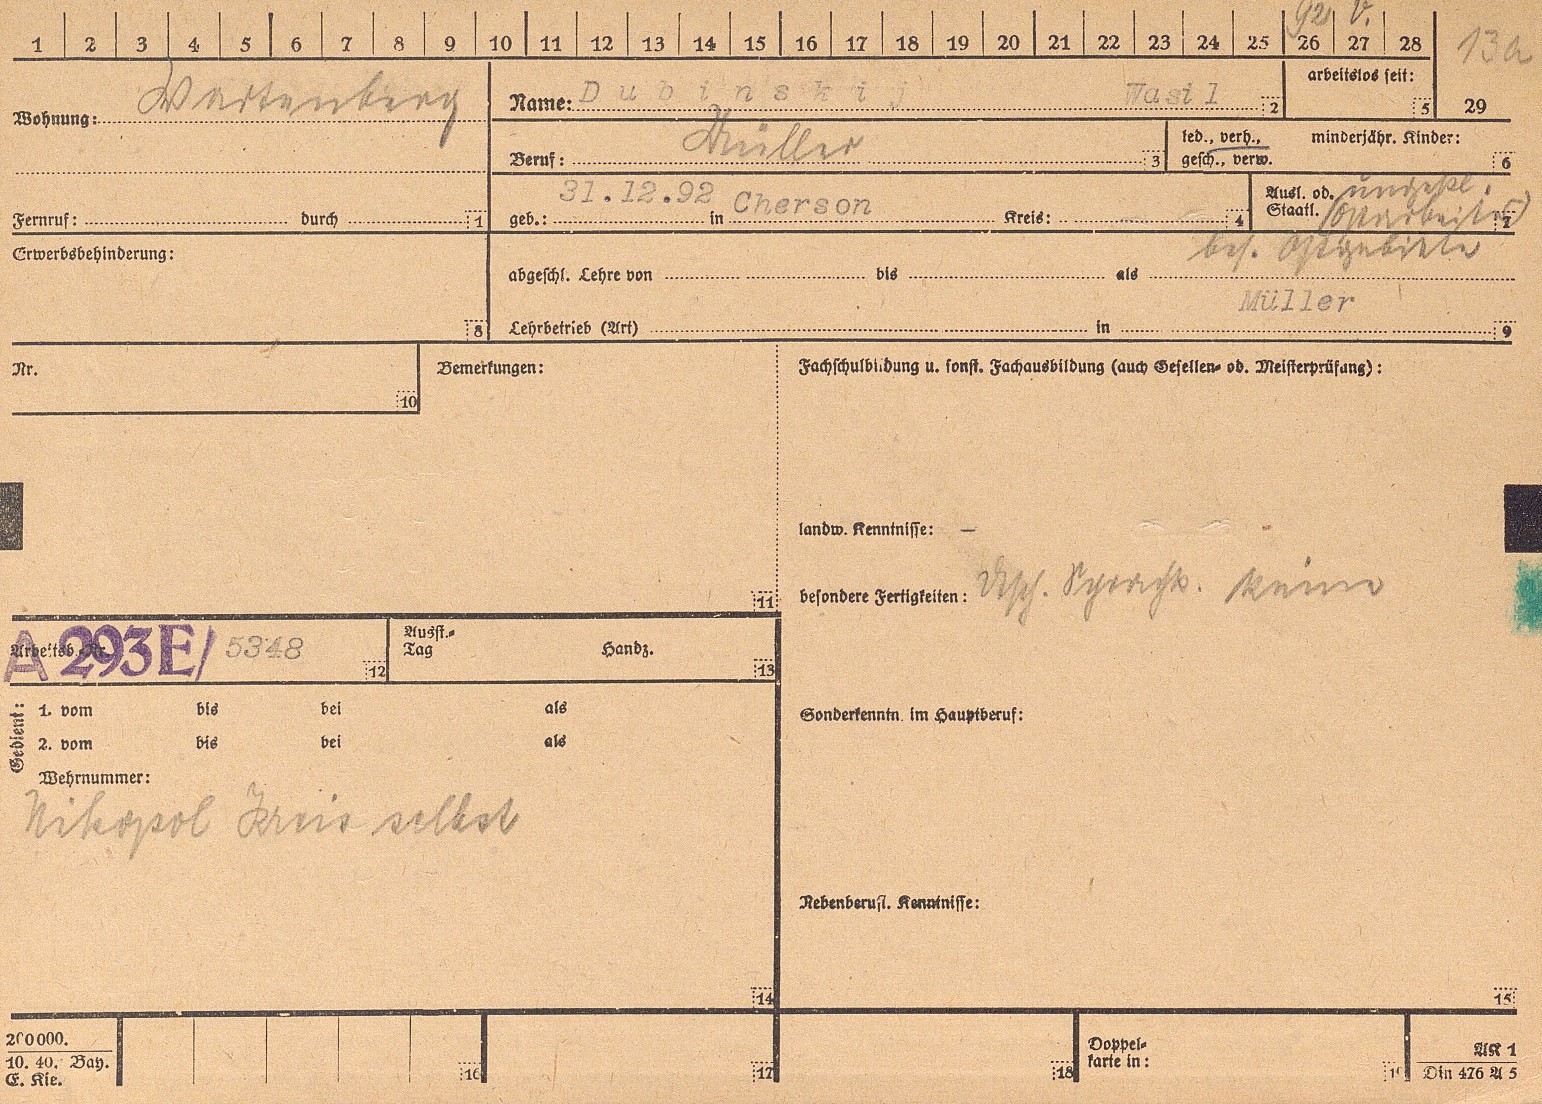 1 2 3 4 5 6 7 8 9 10 11 12 13 14 15 16 17 18 19 20 21 22 23 24 25 26 27 28 92 V. 13a
29
Wohnung: Wartenberg
Name: Dubinskij Wasil 2
arbeitslos seit: 5
Beruf: Müller 3
led., verh., gesch., verw.
minderjähr. Kinder: 6
Fernruf: durch 1
geb.: 31.12.92 in Cherson Kreis: 4
Ausl. od. Staatl. ungekl. (Ostarbeiter) 7
bes. Ostgebiete
Erwerbsbehinderung: 8
abgeschl. Lehre von bis als
Müller
Lehrbetrieb (Art) in 9
Nr. 10
Bemerkungen: 11
Fachschulbildung u. sonst. Fachausbildung (auch Gesellen- od. Meisterprüfung):
landw. Kenntnisse: —
besondere Fertigkeiten: dtsch. Sprachk. keine
Arbeitsb.-Nr. A 293E/ 5348 12
Ausst.-Tag Handz. 13
Gedient:
1. vom bis bei als
2. vom bis bei als
Wehrnummer:
Nikopol Kreis selbst
14
Sonderkenntn. im Hauptberuf:
Nebenberufl. Kenntnisse:
15
200000.
10. 40. Bay.
E. Kie.
16 17 18
Doppel-
karte in: 19
AK 1
Din 476 A 5